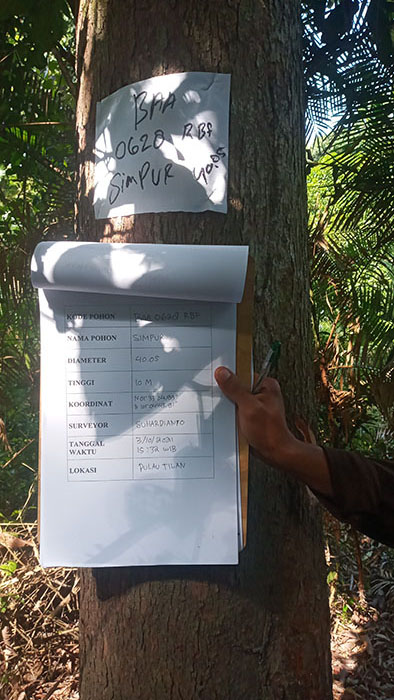 BAA
0620 RBF
SIMPUR 40.05
KODE POHON BAA 0620 RBF
NAMA POHON SIMPUR
DIAMETER 40.05
TINGGI 10 M
KOORDINAT
SURVEYOR SUHARDIANTO
TANGGAL 3/10/2021
WAKTU 15:32 WIB
LOKASI PULAU TILAN